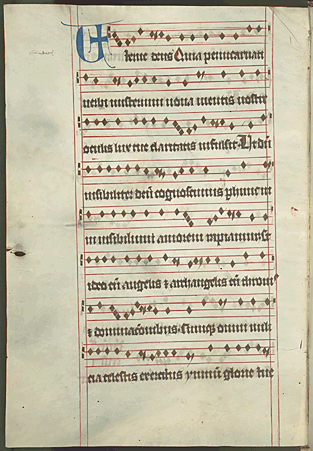 Eterne deus Quia per incarnati
verbi misterium nova mentis nostre
oculis lux tue claritatis infulsit. Ut dum
visibiliter deū cognoscimus p hunc in
invisibilium amorem rapiamur Et
ideo cū angelis & archangelis cū throni
& dominacionibus cumq omni mili
cia celestis exercitus ymnū glorie tue